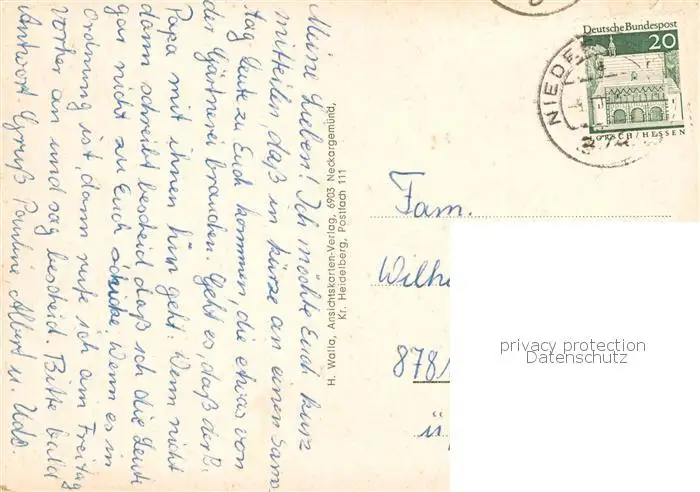 Meine Lieben! Ich möchte Euch kurz
mitteilen, daß in kürze an einen Sams-
tag Leute zu Euch kommen, die etwas von
der Gärtnerei brauchen. Geht es, daß der
Papa mit ihnen hin geht. Wenn nicht
dann schreibt bescheid daß ich die Leute
gar nicht zu Euch schicke. Wenn es in
Ordnung ist, dann rufe ich am Freitag
vorher an und sag bescheid. Bitte bald
Antwort. Gruß Pauline Albert u. Udo.
H. Walla, Ansichtskarten-Verlag, 6903 Neckargemünd,
Kr. Heidelberg, Postfach 111
Deutsche Bundespost
20
LORSCH/HESSEN
Fam.
878
privacy protection
Datenschutz